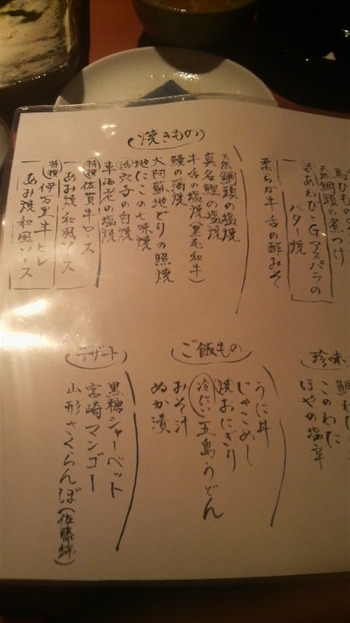 馬ひもの
天然鯛頭の煮つけ
活あわびとGアスパラの
バター焼
柔らか牛舌の酢みそ
焼きもの
天然鯛頭の塩焼
真名鰹の塩焼
牛舌の塩焼(黒毛和牛)
鰻の蒲焼
大阿蘇地どりの照焼
地だこの七味焼
活穴子の白焼
車海老の塩焼
特撰佐賀牛ロース
あみ焼和風ソース
特撰伊万里牛ヒレ
あみ焼和風ソース
珍味
このわた
ほやの塩辛
ご飯もの
うに丼
じゃこめし
焼おにぎり
冷たい五島うどん
おみそ汁
ぬか漬
デザート
黒糖シャーベット
宮崎マンゴー
山形さくらんぼ(佐藤錦)